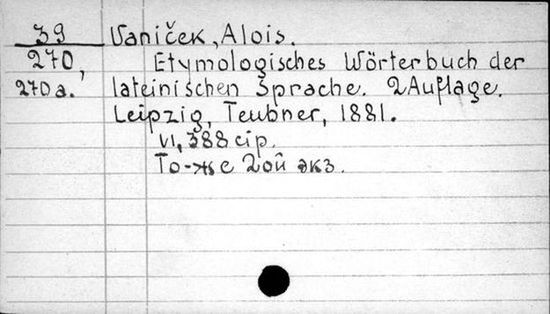 39 Vaniček, Alois.
270, Etymologisches Wörterbuch der
270a. lateinischen Sprache. 2 Auflage.
Leipzig, Teubner, 1881.
VI, 388 cip.
То-же 2ой экз.